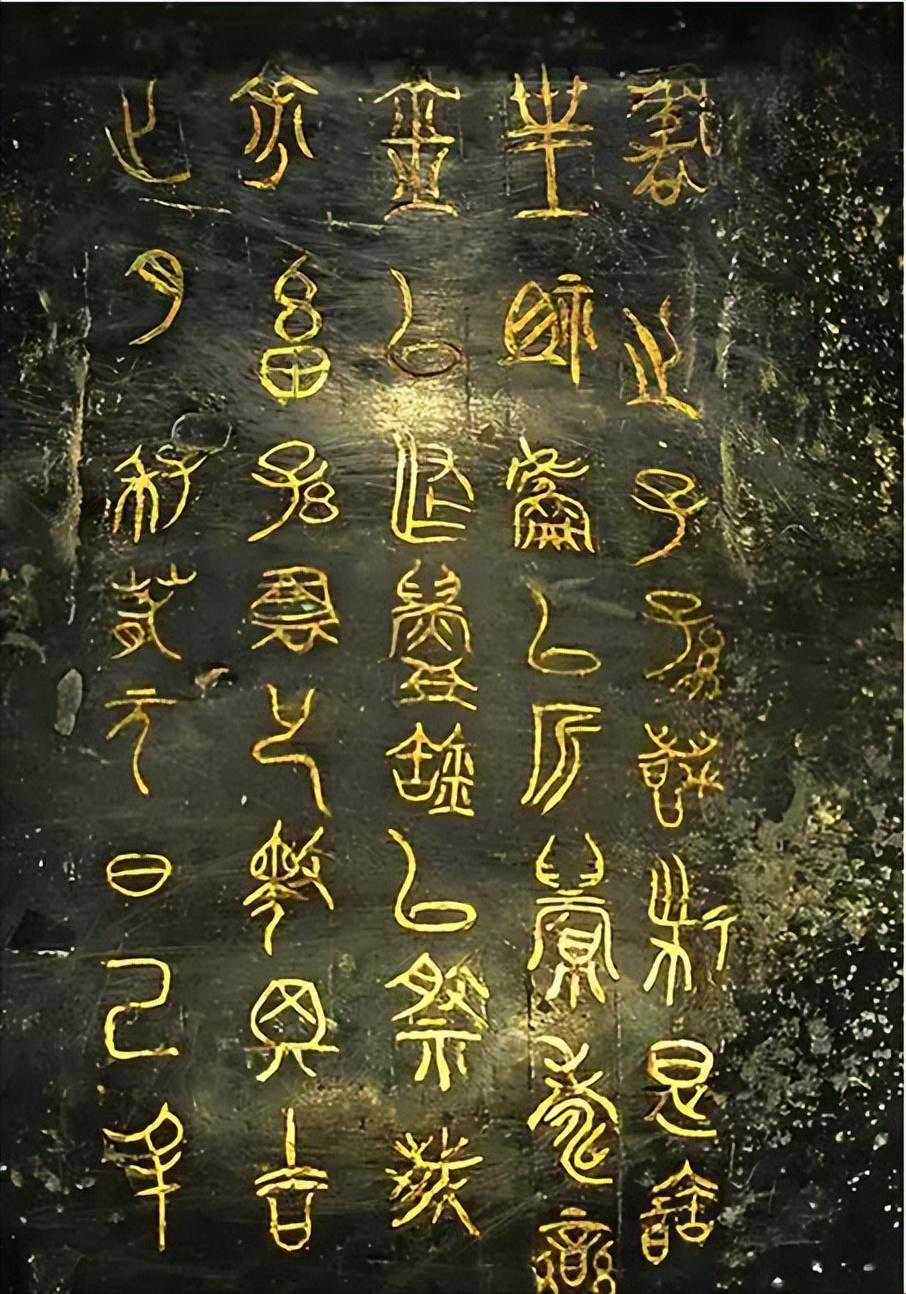 正月季春元日己丑
余畜孫書已擇其吉
金以作鑄缶以祭我
皇祖以祈眉壽欒
書之子孫萬世是寶